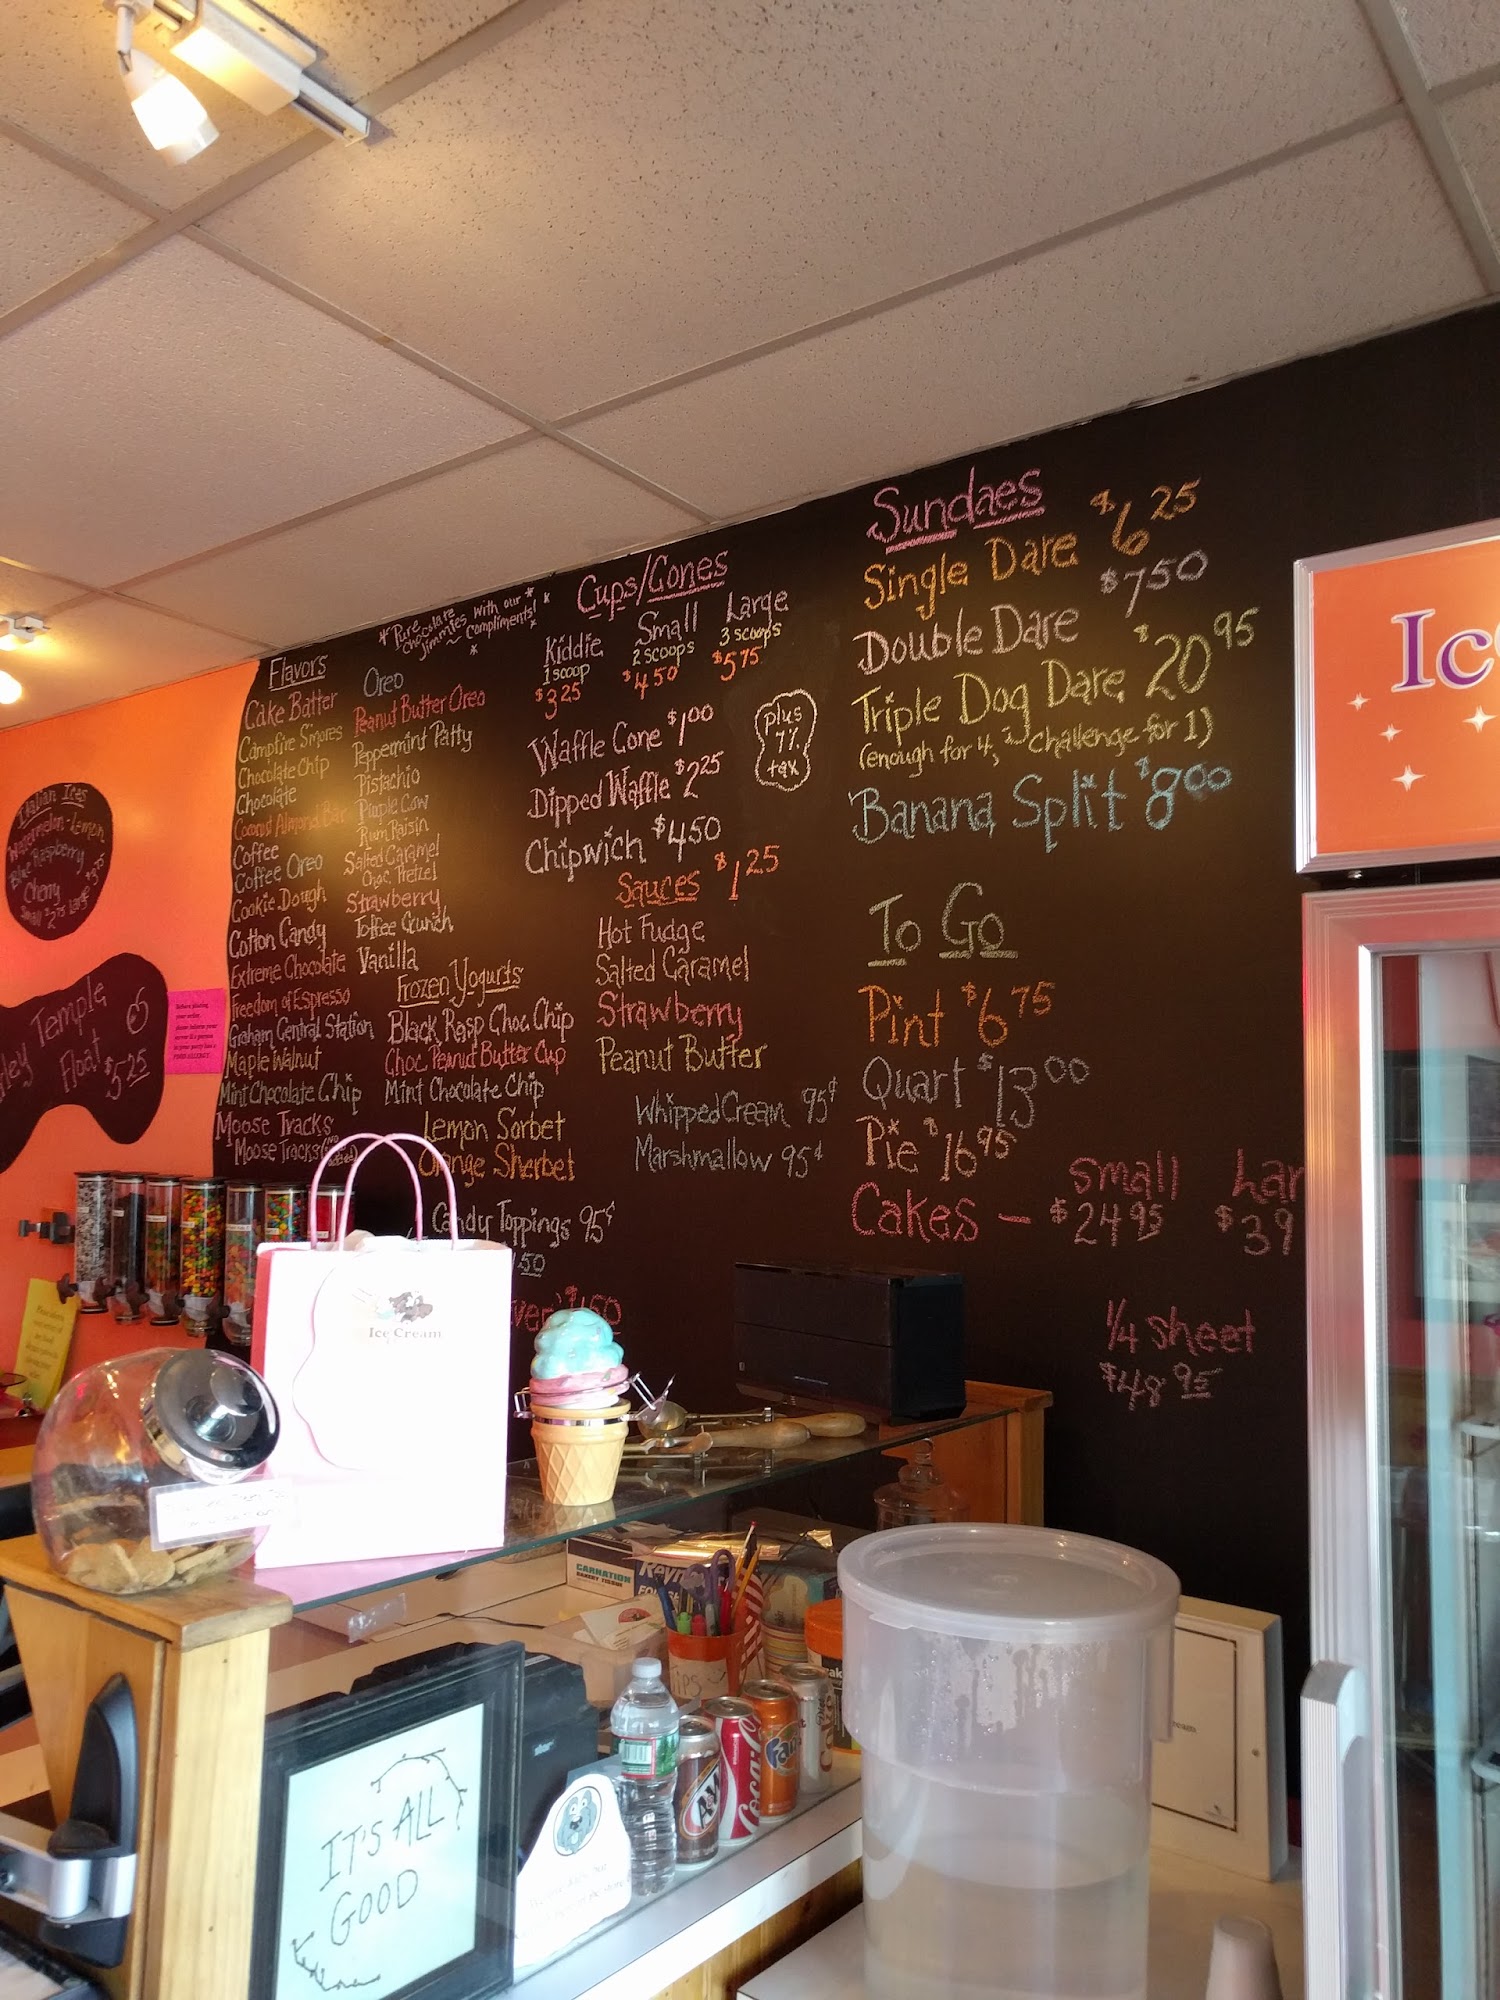 Italian Ices
Watermelon - Lemon
Blue Raspberry
Cherry
Small $2.75 Large $3.75
Temple
Float
$5.25
Flavors
Cake Batter
Campfire Smores
Chocolate Chip
Chocolate
Coconut Almond Bar
Coffee
Coffee Oreo
Cookie Dough
Cotton Candy
Extreme Chocolate
Freedom of Espresso
Graham Central Station
Maple Walnut
Mint Chocolate Chip
Moose Tracks
Moose Tracks
* Pure
Chocolate
Jimmies with our *
Compliments! *
*
Oreo
Peanut Butter Oreo
Peppermint Patty
Pistachio
Purple Cow
Rum Raisin
Salted Caramel
Choc. Pretzel
Strawberry
Toffee Crunch
Vanilla
Frozen Yogurts
Black Rasp Choc Chip
Choc. Peanut Butter Cup
Mint Chocolate Chip
Lemon Sorbet
Orange Sherbet
Candy Toppings 95¢
Cups/Cones
Kiddie
1 scoop
$3.25
Small
2 scoops
$4.50
Large
3 scoops
$5.75
Waffle Cone $1.00
Dipped Waffle $2.25
Chipwich $4.50
plus
7%
tax
Sauces $1.25
Hot Fudge
Salted Caramel
Strawberry
Peanut Butter
Whipped Cream 95¢
Marshmallow 95¢
Sundaes
Single Dare $6.25
Double Dare $7.50
Triple Dog Dare $20.95
(enough for 4, challenge for 1)
Banana Split $8.00
To Go
Pint $6.75
Quart $13.00
Pie $16.95
small
Cakes - $24.95
$39
1/4 sheet
$48.95
Ice Cream
IT'S ALL
GOOD
CARNATION
BAKERY TISSUE
Tips
star
A&W
Coca-Cola
Fanta